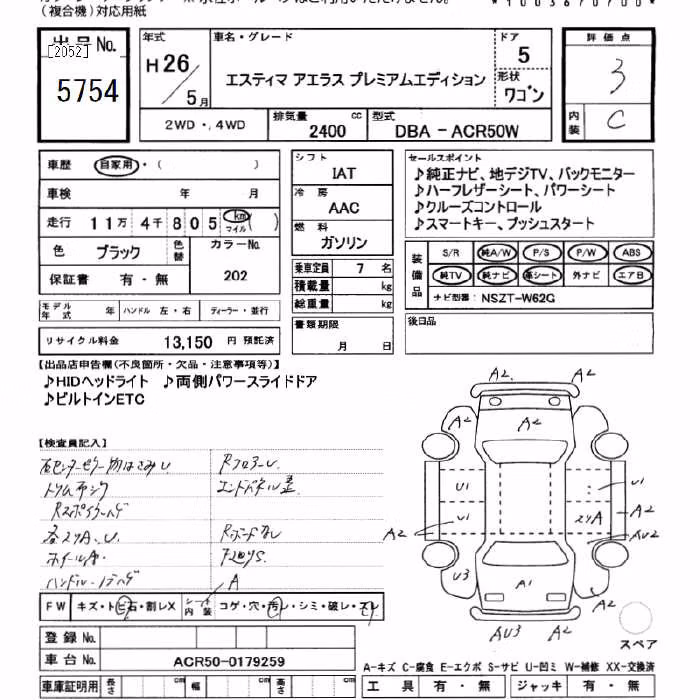 (複合機)対応用紙
*1003670700*
出品No.
[2052]
5754
年式
H26/5月
車名・グレード
エスティマ アエラス プレミアムエディション
ドア
5
形状
ワゴン
評価点
3
内装
C
2WD・4WD
排気量
2400
cc
型式
DBA - ACR50W
車歴
自家用・( )
車検
年 月
走行
11万4千805
km
マイル
( )
色
ブラック
色替
カラーNo.
202
保証書
有・無
モデル年式
年
ハンドル 左・右
ディーラー・並行
リサイクル料金
13,150 円 預託済
シフト
IAT
冷房
AAC
燃料
ガソリン
乗車定員 7 名
積載量 kg
総重量 kg
書類期限
月 日
セールスポイント
♪純正ナビ、地デジTV、バックモニター
♪ハーフレザーシート、パワーシート
♪クルーズコントロール
♪スマートキー、プッシュスタート
装備品
S/R 純A/W P/S P/W ABS
純TV 純ナビ 革シート 外ナビ エアB
ナビ型番: NSZT-W62G
後日品
【出品店申告欄(不良箇所・欠品・注意事項等)】
♪HIDヘッドライト ♪両側パワースライドドア
♪ビルトインETC
【検査員記入】
右センターピラー物はさみU
RフロアーU
各スリA、U
A
FW キズ・トビ石・割レX
シート内装 コゲ・穴・汚レ・シミ・破レ・スレ
登録No.
車台No.
ACR50-0179259
車庫証明用 長さ cm 幅 cm 高さ cm
A2
A2
A2
A2
A2
U1
U1
U1
スリA
A2
A2
AU2
U3
A1
A2
AU3
スペア
A-キズ C-腐食 E-エクボ S-サビ U-凹ミ W-補修 XX-交換済
工具 有・無 ジャッキ 有・無